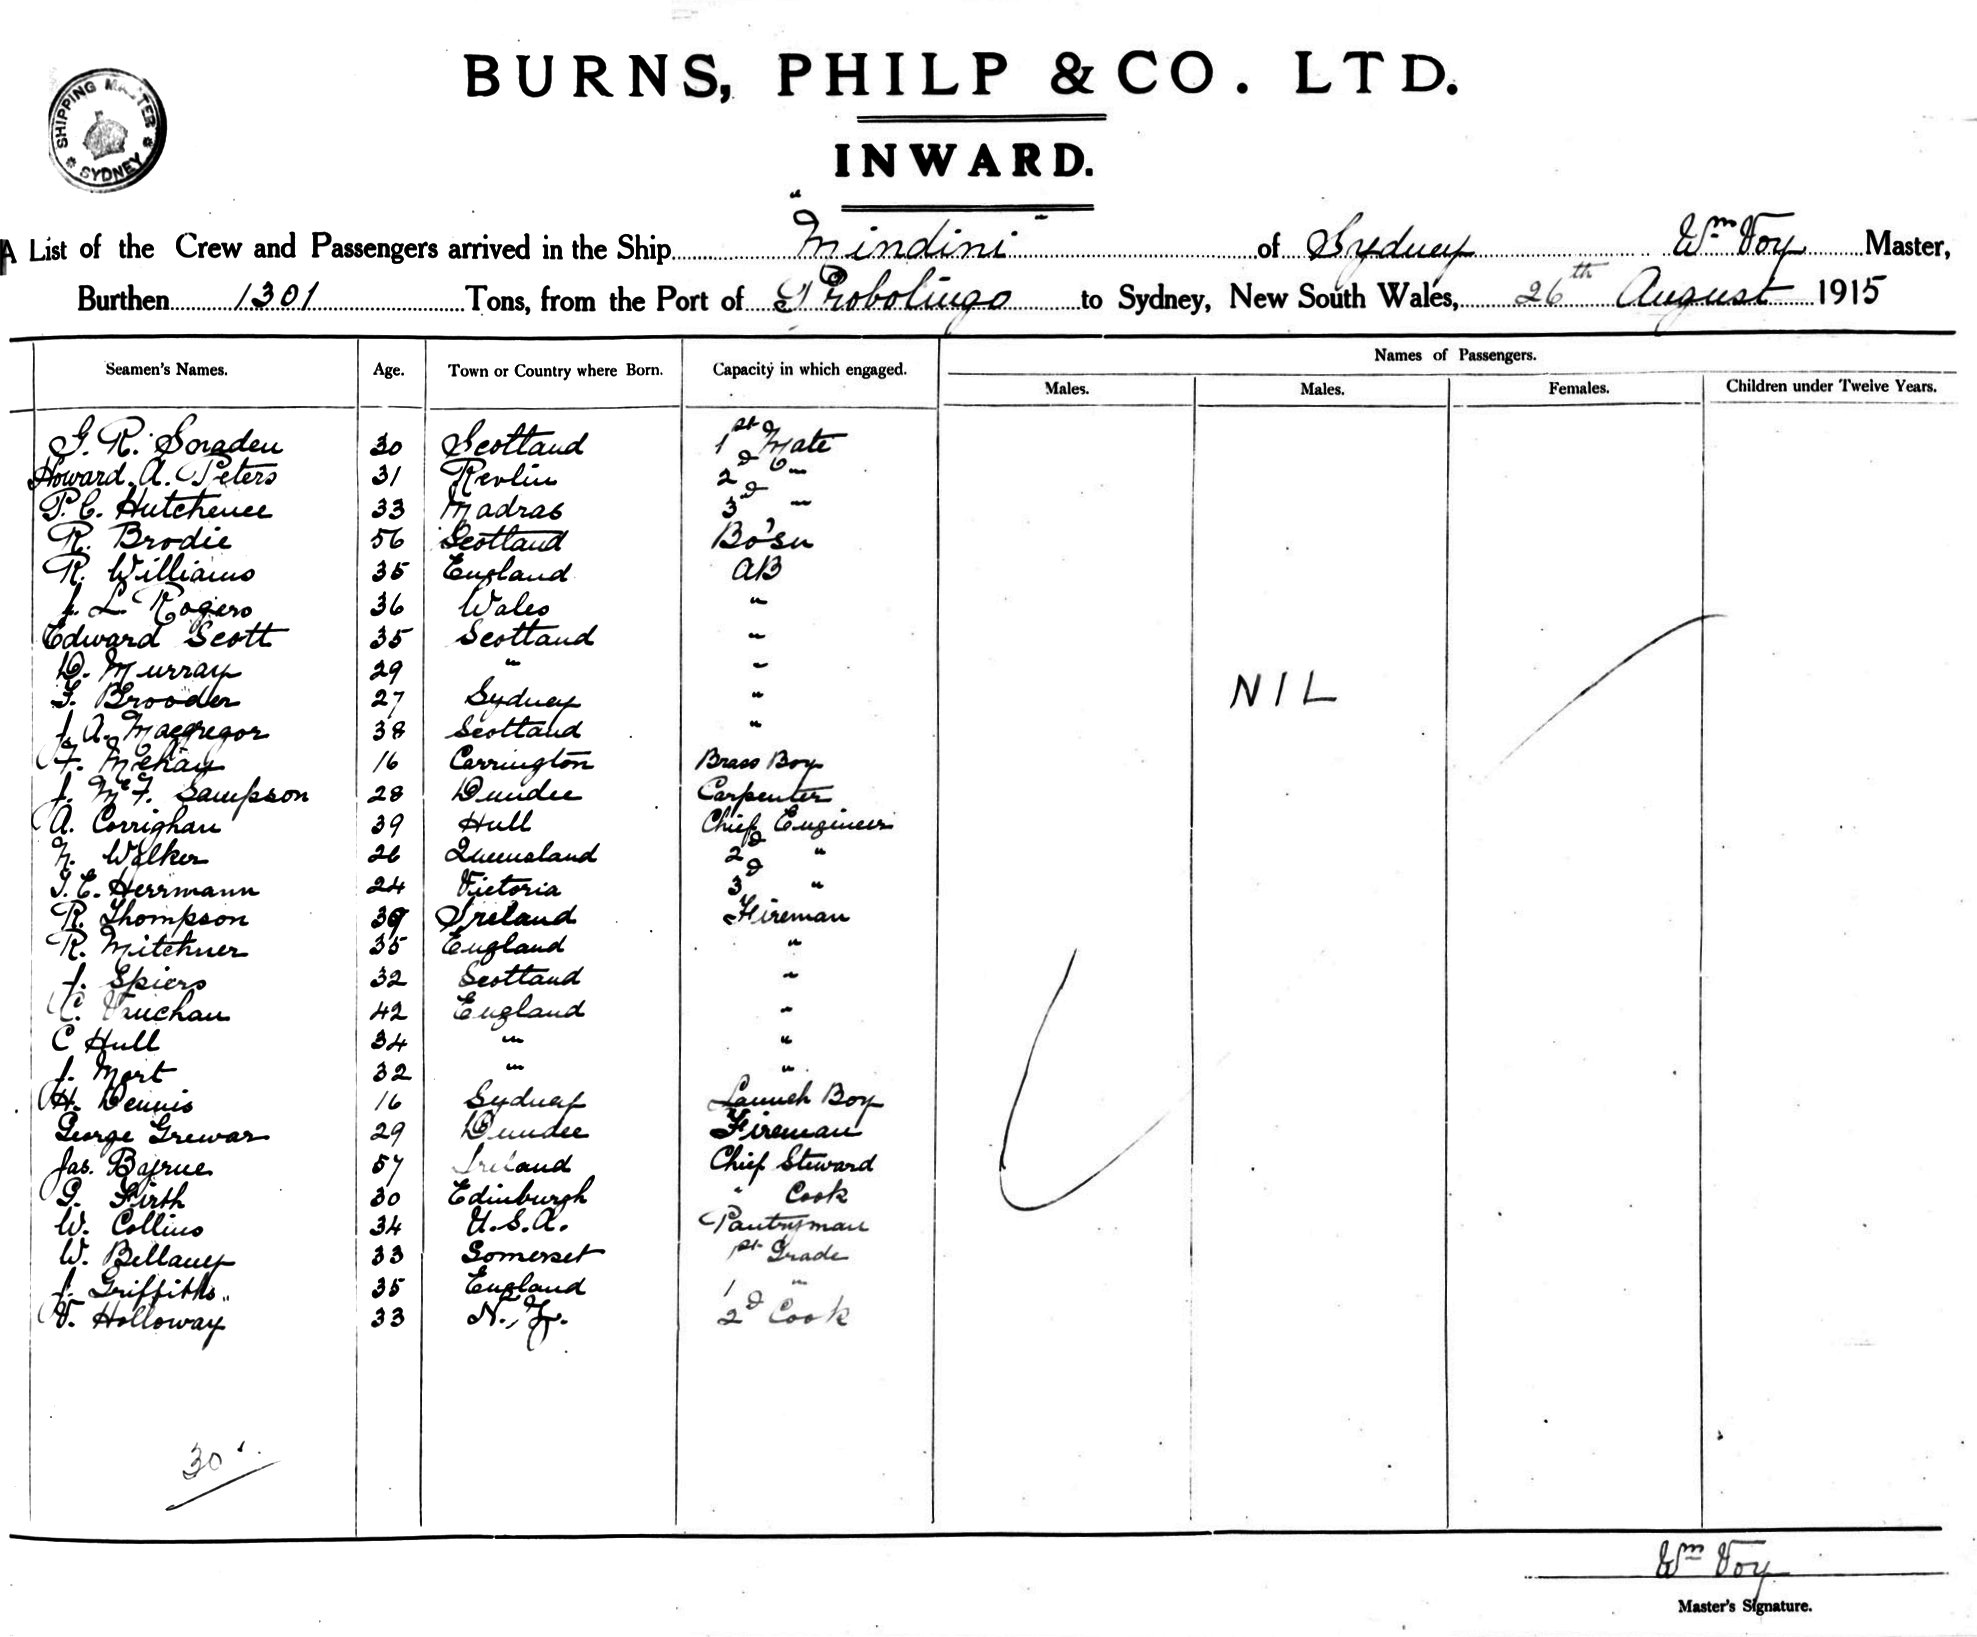 SHIPPING MASTER
SYDNEY
BURNS, PHILP & CO. LTD.
INWARD.
A List of the Crew and Passengers arrived in the Ship "Mindini" of Sydney Wm Voy Master,
Burthen 1301 Tons, from the Port of Probolingo to Sydney, New South Wales, 26th August 1915
Names of Passengers.
Seamen's Names. Age. Town or Country where Born. Capacity in which engaged. Males. Males. Females. Children under Twelve Years.
G. R. 30 Scotland 1st Mate
Howard. A. Peters 31 2d "
P. C. Hutchence 33 Madras 3d "
R. Brodie 56 Scotland Bo'sn
R. Williams 35 England AB
J. L. Rogers 36 Wales "
Edward Scott 35 Scotland "
D. Murray 29 " "
F. Brooder 27 Sydney "
J. A. Macgregor 38 Scotland "
F. McKay 16 Carrington Brass Boy
J. McF. Sampson 28 Dundee Carpenter
A. Corrighan 39 Hull Chief Engineer
N. Walker 26 Queensland 2d "
J. E. Herrmann 24 Victoria 3d "
R. Thompson 39 Ireland Fireman
R. Mitchner 35 England "
J. Spiers 32 Scotland "
C. Vauchan 42 England "
C Hull 34 " "
J. Mort 32 " "
H. Dennis 16 Sydney Launch Boy
George Grewar 29 Dundee Fireman
Jas. Bayrne 57 Ireland Chief Steward
G. Firth 30 Edinburgh " Cook
W. Collins 34 U.S.A. Pantryman
W. Bellamy 33 Somerset 1st Grade
J. Griffiths 35 England 1 "
V. Holloway 33 N.Z. 2d Cook
NIL
30
Wm Voy
Master's Signature.